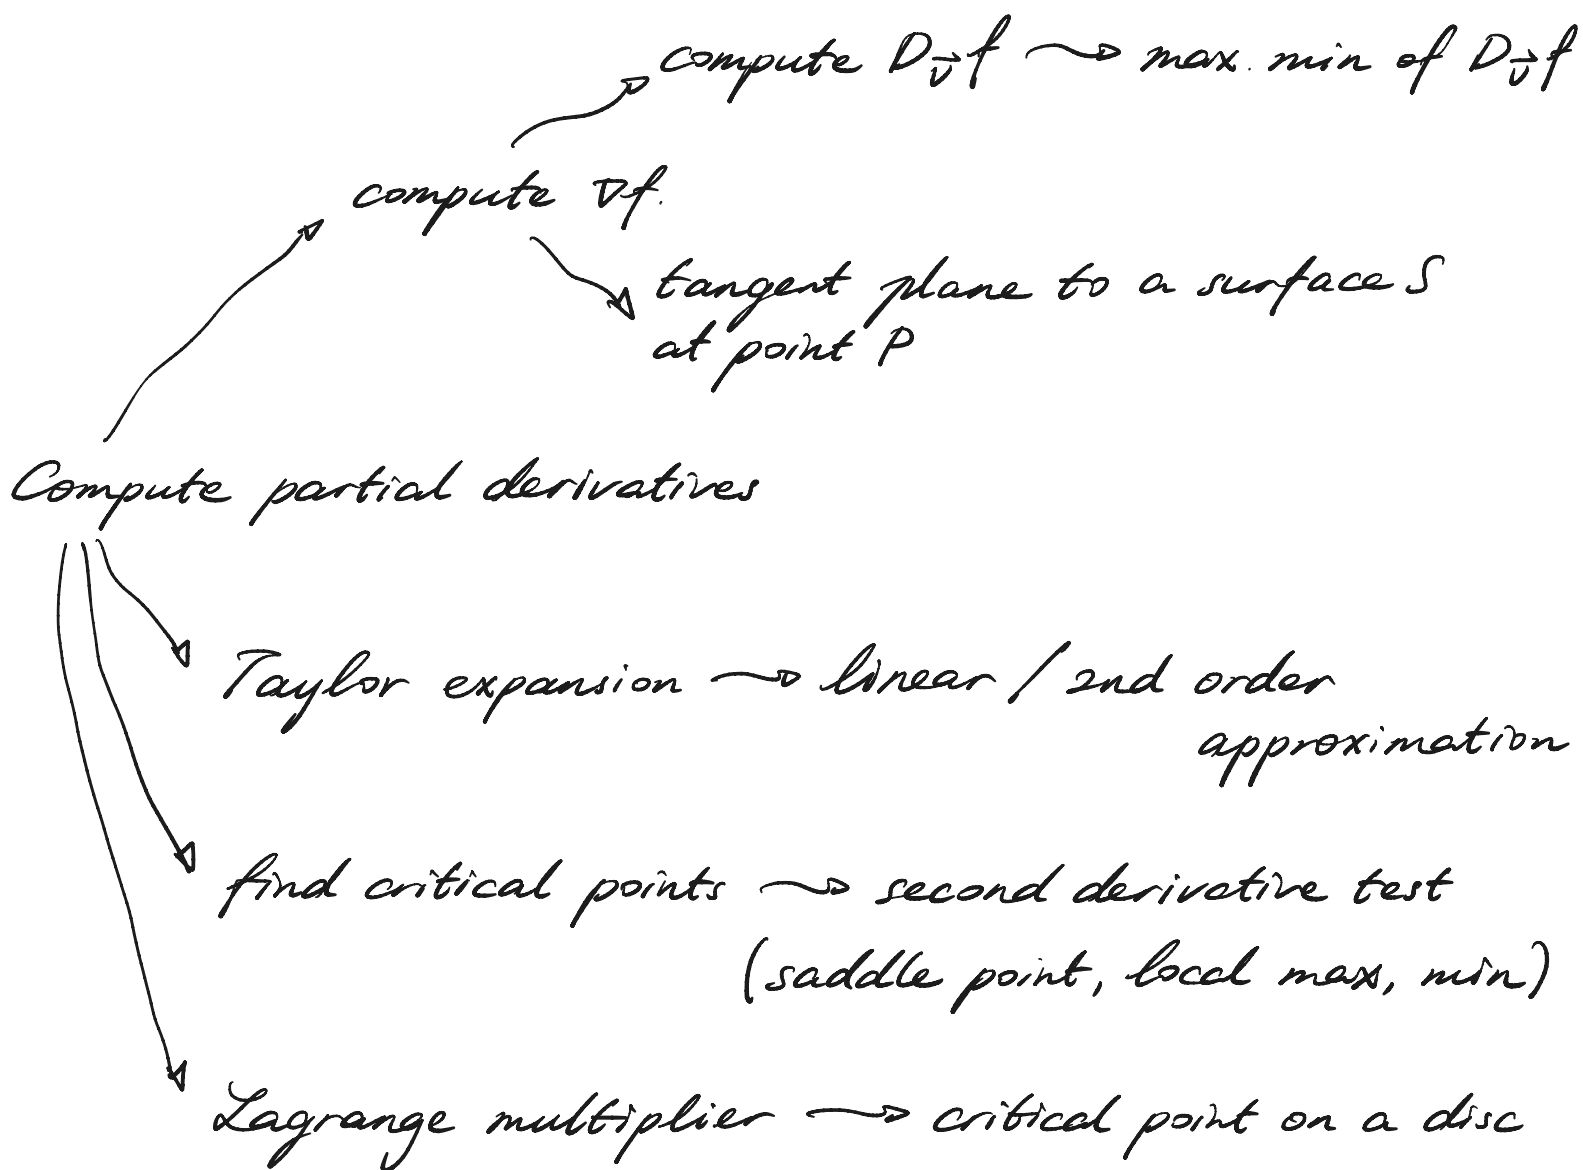 compute D_v⃗ f → max. min of D_v⃗ f
compute ∇f.
tangent plane to a surface S
at point P
Compute partial derivatives
Taylor expansion → linear / 2nd order
approximation
find critical points → second derivative test
(saddle point, local max, min)
Lagrange multiplier → critical point on a disc